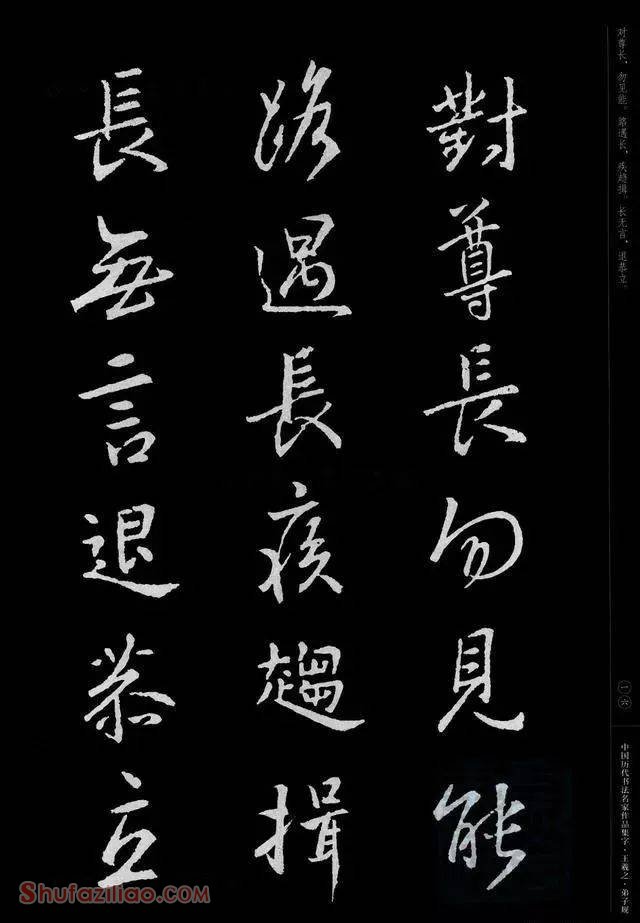 对尊长，勿见能。路遇长，疾趋揖。长无言，退恭立。
對尊長勿見能
路遇長疾趨揖
長無言退恭立
一六
中国历代书法名家作品集字·王羲之·弟子规
Shufaziliao.com